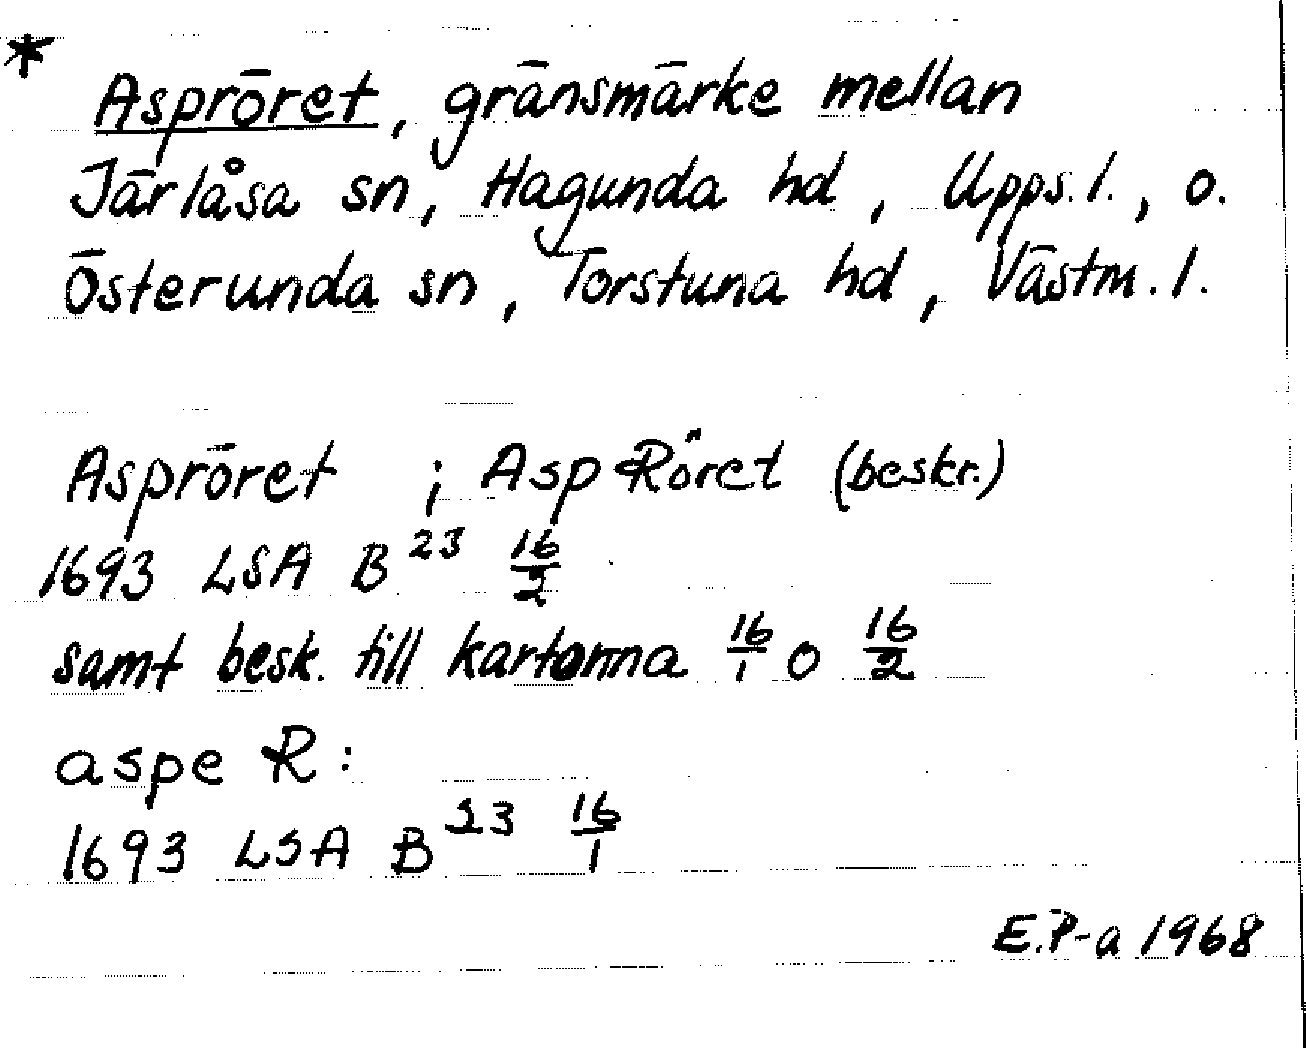 * Aspröret, gränsmärke mellan
Järlåsa sn, Hagunda hd, Upps. l., o.
Österunda sn, Torstuna hd, Västm. l.
Aspröret ; Asp Röret (beskr.)
1693 LSA B²³ 16/2
samt besk. till kartorna 16/1 o 16/2
aspe R:
1693 LSA B²³ 16/1
E.P-a 1968